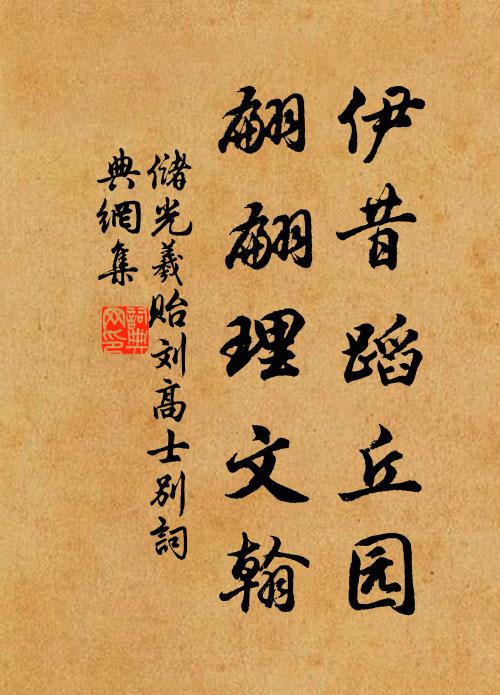 伊昔蹈丘园
翩翩理文翰
储光羲贻刘高士别詞
典網集
詞典网印